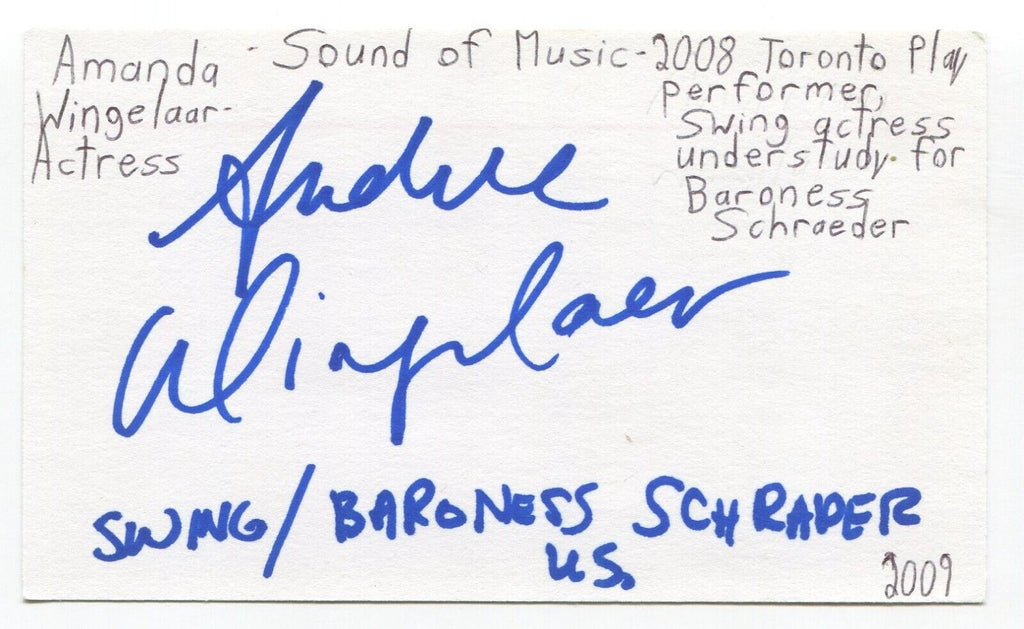 Amanda
Wingelaar-
Actress
- Sound of Music - 2008 Toronto Play
performer,
Swing actress
understudy for
Baroness
Schraeder
Andrre
Wingelaar
SWING/BARONESS SCHRADER
U.S.
2009